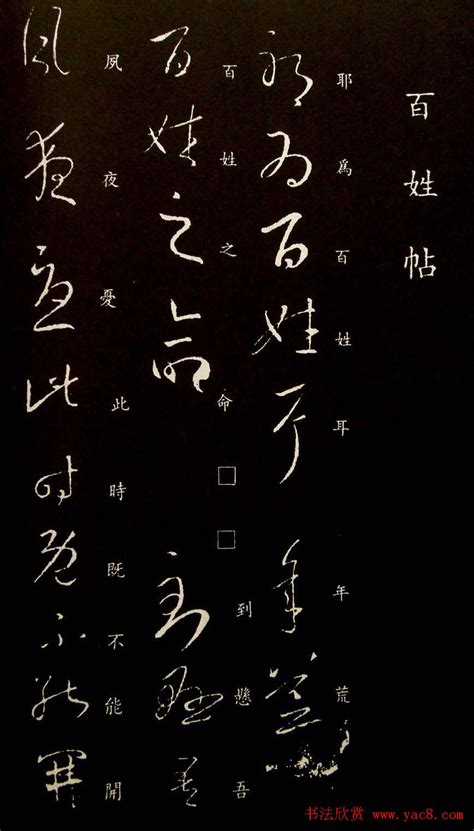 百姓帖
耶為百姓耳年荒
百姓之命□□到懸吾
夙夜憂此時既不能開
书法欣赏 www.yac8.com